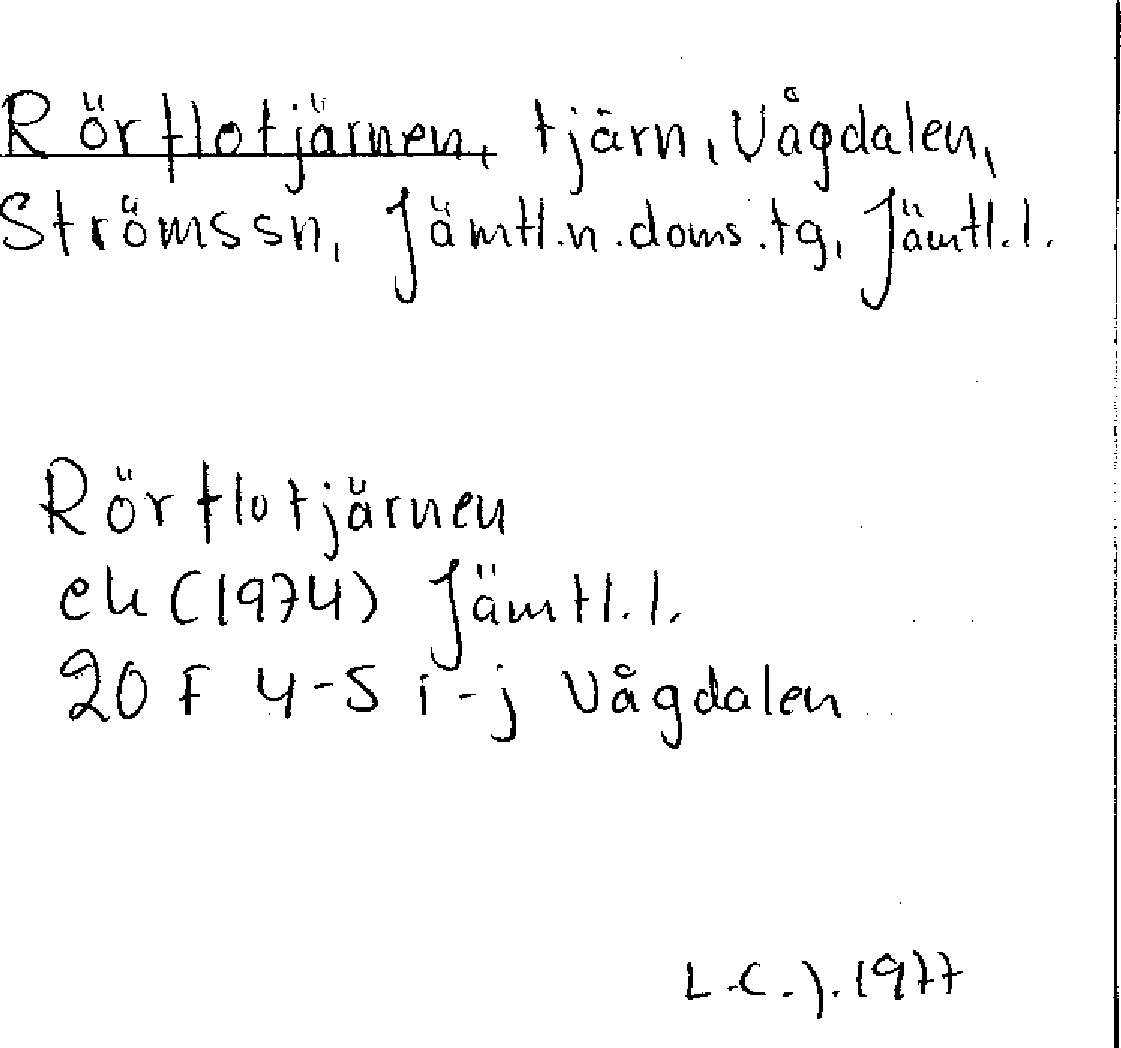 Rörflotjärnen, tjärn, Vågdalen,
Ströms sn, Jämtl.n.doms.tg, Jämtl.l.
Rörflotjärnen
ek (1974) Jämtl.l.
20 F 4-5 i-j Vågdalen
L.C.J. 1977